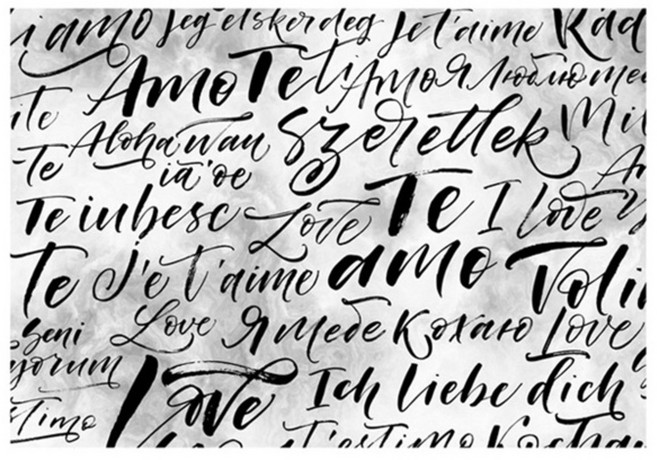 i amo Jeg elsker deg Je t'aime Rád
Amo Te Ti Amo Я люблю
Te Aloha wau Szeretlek
ia 'oe
Te iubesc Love Te I love
Te J'e t'aime amo Volim
Seni Love Я тебе кохаю Love
yorum Love Ich liebe dich
T'estimo Kocha